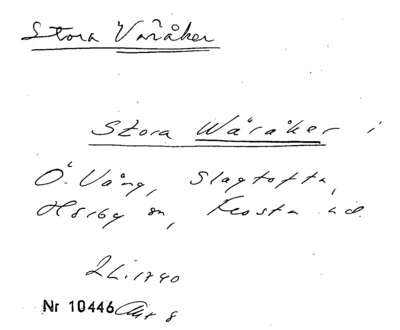 Stora Varåker
Stora Wäråker i
Ö. Vång, Slagtofta,
Hörby sn, Frosta hd.
L.1740
Nr 10446 Akt 8